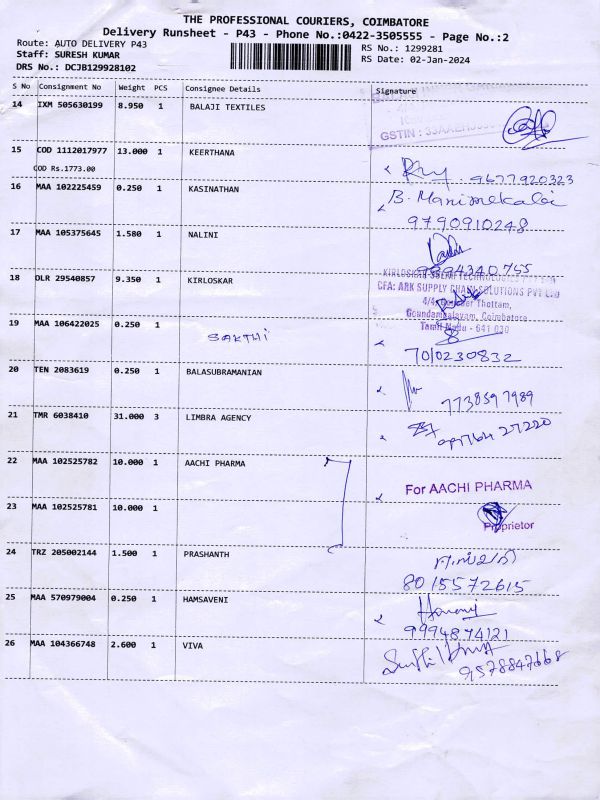 THE PROFESSIONAL COURIERS, COIMBATORE
Delivery Runsheet - P43 - Phone No.:0422-3505555 - Page No.:2
Route: AUTO DELIVERY P43
Staff: SURESH KUMAR
DRS No.: DCJB129928102
RS No.: 1299281
RS Date: 02-Jan-2024
S No Consignment No Weight PCS Consignee Details Signature
14 IXM 505630199 8.950 1 BALAJI TEXTILES
GSTIN :
15 COD 1112017977 13.000 1 KEERTHANA
COD Rs.1773.00
9677920323
16 MAA 102225459 0.250 1 KASINATHAN
B. Manimekalai
9790910248
17 MAA 105375645 1.580 1 NALINI
9894340755
18 DLR 29540857 9.350 1 KIRLOSKAR
CFA: ARK SUPPLY CHAIN SOLUTIONS PVT LTD
Thottam,
Goundampalayam, Coimbatore
Tamil Nadu - 641 030
19 MAA 106422025 0.250 1 SAKTHI
7010230832
20 TEN 2083619 0.250 1 BALASUBRAMANIAN
7738597989
21 TMR 6038410 31.000 3 LIMBRA AGENCY
22 MAA 102525782 10.000 1 AACHI PHARMA
For AACHI PHARMA
23 MAA 102525781 10.000 1
Proprietor
24 TRZ 205002144 1.500 1 PRASHANTH
8015572615
25 MAA 570979004 0.250 1 HAMSAVENI
9994874121
26 MAA 104366748 2.600 1 VIVA
9578847668